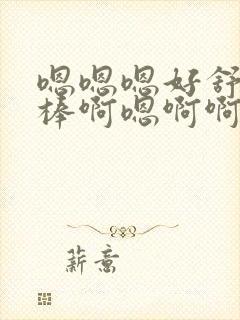 嗯嗯嗯好舒
棒啊嗯啊啊
薪意